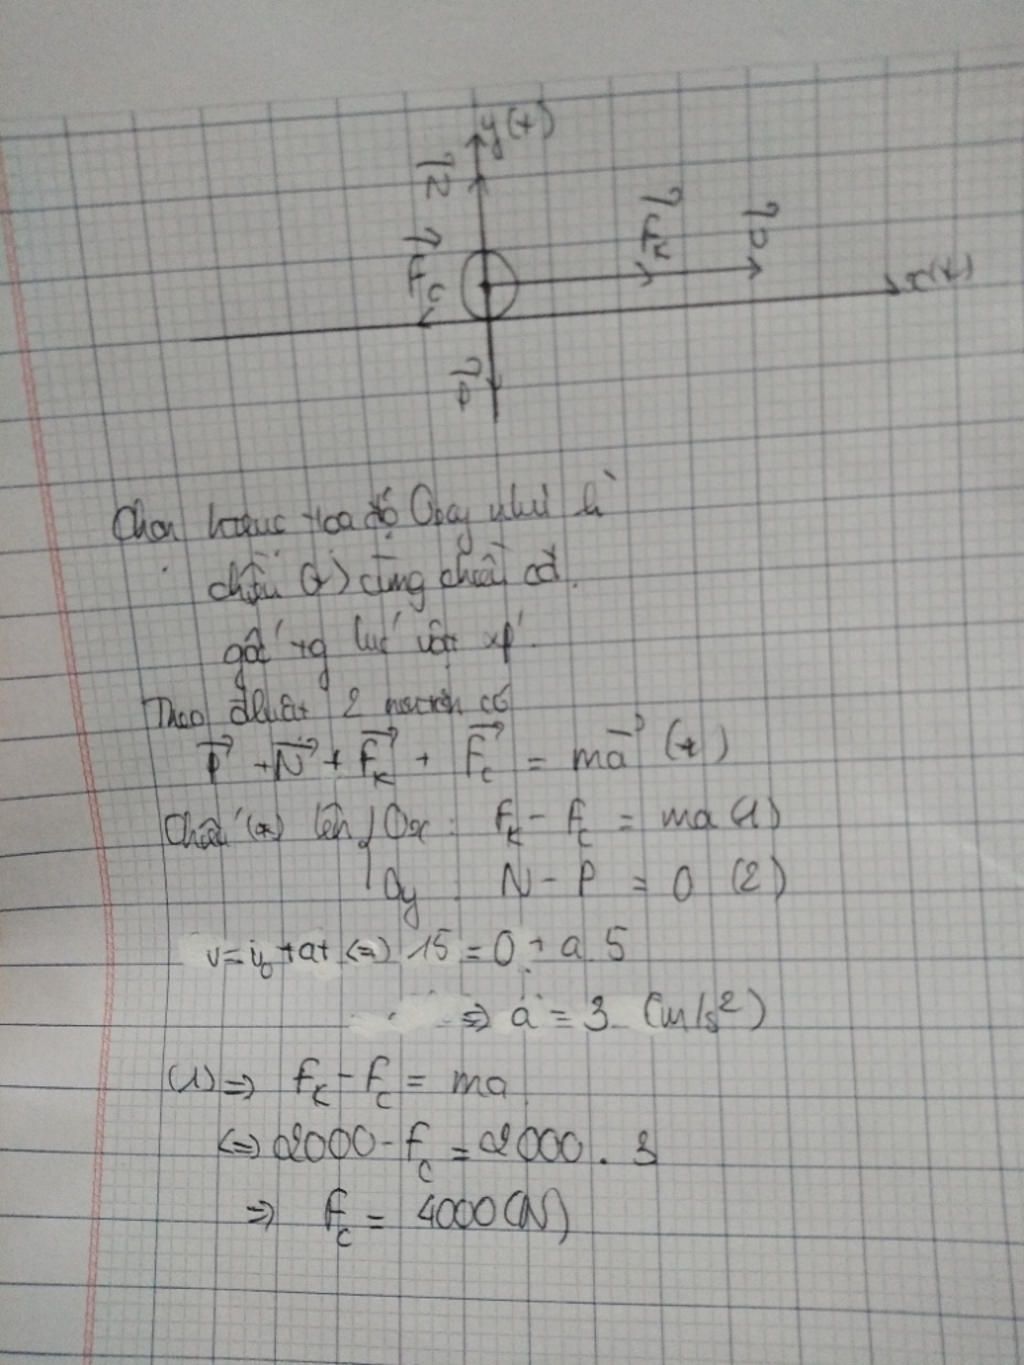 y(+)
N
Fc
Fk
v
x(+)
P
Chọn hệ trục tọa độ Oxy như h
chiều (+) cùng chiều cđ.
gốc tg lúc vật xp'.
Theo đluật 2 newton có
P + N + Fk + Fc = ma (*)
Chiếu (*) lên Ox : Fk - Fc = ma (1)
Oy N - P = 0 (2)
v = v0 + at <=> 15 = 0 + a. 5
=> a = 3 (m/s²)
(1) => Fk - Fc = ma
<=> 2000 - Fc = 2000 . 3
=> Fc = 4000 (N)